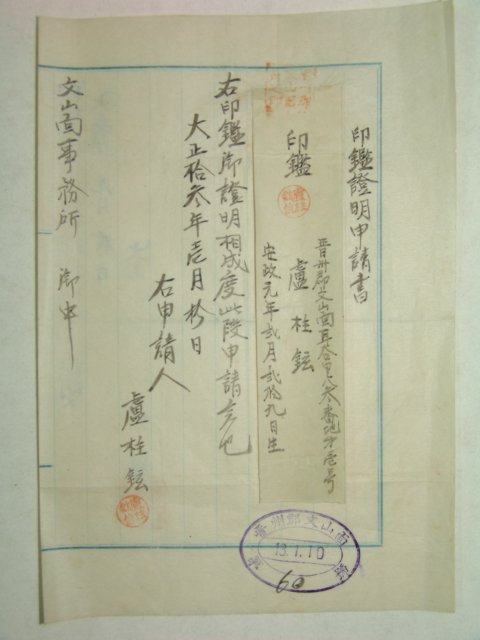 印鑑證明申請書
晋州郡文山面耳谷里八参番地ノ壱号
印鑑
盧柱鉉
安政元年弐月弐拾九日生
右印鑑御證明相成度此段申請候也
大正拾参年壱月拾日
右申請人
盧柱鉉
文山面事務所 御中
晋州郡文山面
13.1.10
60